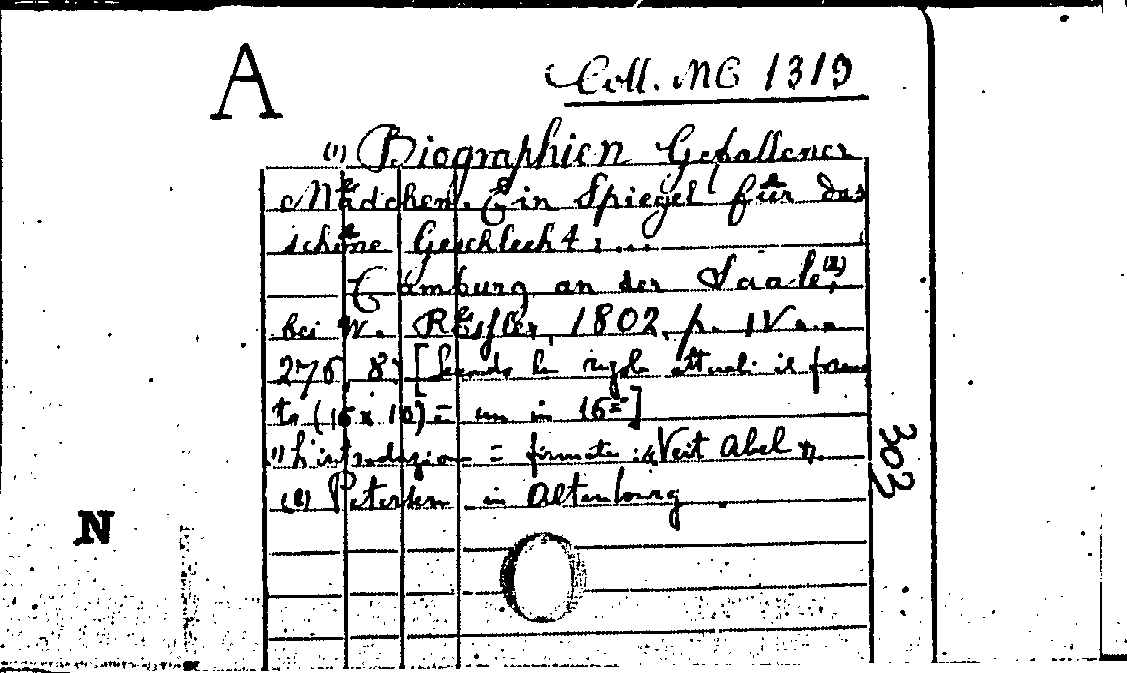 A
Coll. MC 1319
(1) Biographien Gefallener
Mädchen. Ein Spiegel für das
schöne Geschlecht: ...
Camburg an der Saale, (2)
bei W. 1802, p. IV
276, 8° [Secondo la regola attuale il forma
to (16 x 10) = in 16°]
(1) L'introduzione = firmata: « Veit Abel ».
(2) Petersen in Altenbourg.
303
N